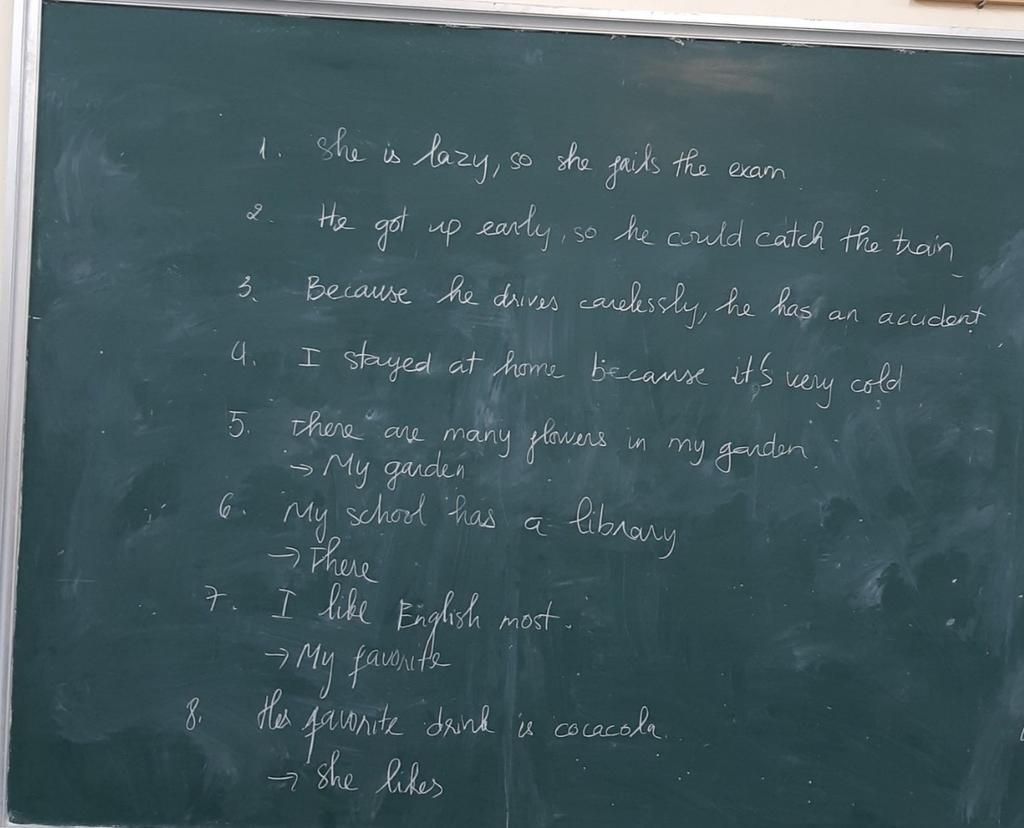 1. She is lazy, so she fails the exam
2. He got up early, so he could catch the train
3. Because he drives carelessly, he has an accident
4. I stayed at home because it's very cold
5. There are many flowers in my garden.
→ My garden
6. My school has a library
→ There
7. I like English most.
→ My favorite
8. Her favorite drink is cocacola.
→ She likes